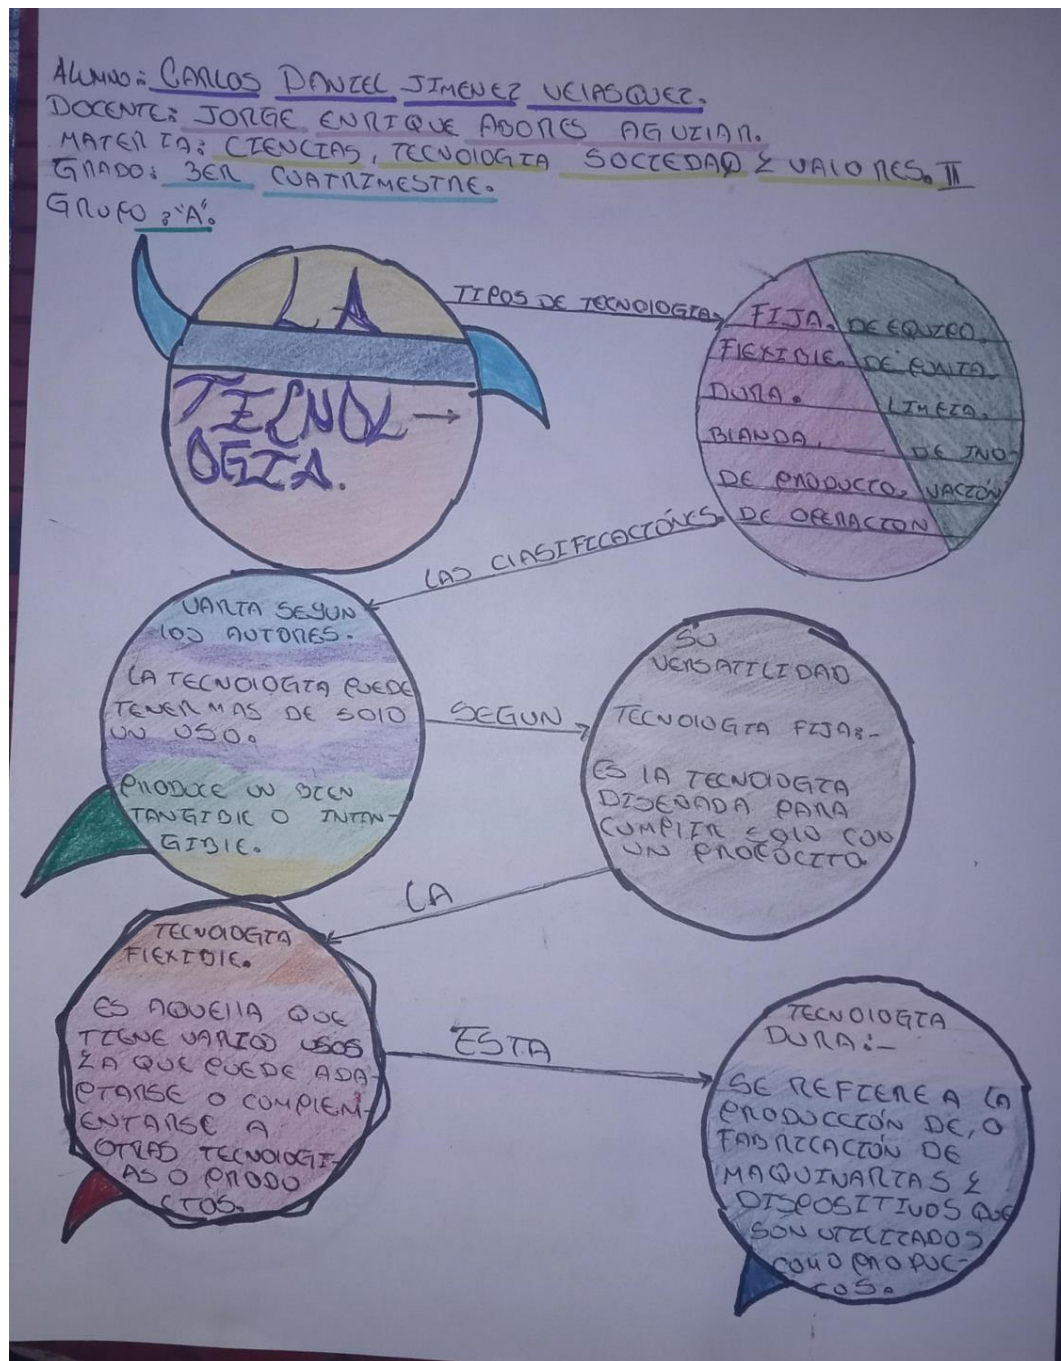 ALUMNO: CARLOS DANIEL JIMENEZ VELASQUEZ.
DOCENTE: JORGE ENRIQUE ADORES AGUILAR.
MATERIA: CIENCIAS, TECNOLOGIA SOCIEDAD Y VALORES. II
GRADO: 3ER CUATRIMESTRE.
GRUPO: "A".
LA
TECNOL
OGIA.
TIPOS DE TECNOLOGIA.
FIJA.
FLEXIBLE.
DURA.
BLANDA.
DE PRODUCTO.
DE OPERACION
DE EQUIPO.
DE PUNTA.
LIMPIA.
DE INO-
VACIÓN
LAS CLASIFICACIÓNES.
VARIA SEGUN
LOS AUTORES.
LA TECNOLOGIA PUEDE
TENER MAS DE SOLO
UN USO.
PRODUCE UN BIEN
TANGIBLE O INTAN-
GIBLE.
SEGUN
SU
VERSATILIDAD
TECNOLOGIA FIJA:-
ES LA TECNOLOGIA
DISEÑADA PARA
CUMPLIR SOLO CON
UN PROPOCITO.
LA
TECNOLOGIA
FLEXIBLE.
ES AQUELLA QUE
TIENE VARIOS USOS
Y A QUE PUEDE ADA-
PTARSE O COMPLEM-
ENTARSE A
OTRAS TECNOLOGI-
AS O PRODU
CTOS.
ESTA
TECNOLOGIA
DURA:-
SE REFIERE A LA
PRODUCCIÓN DE, O
FABRICACIÓN DE
MAQUINARIAS Y
DISPOSITIVOS QUE
SON UTILIZADOS
COMO PRODUC-
TOS.